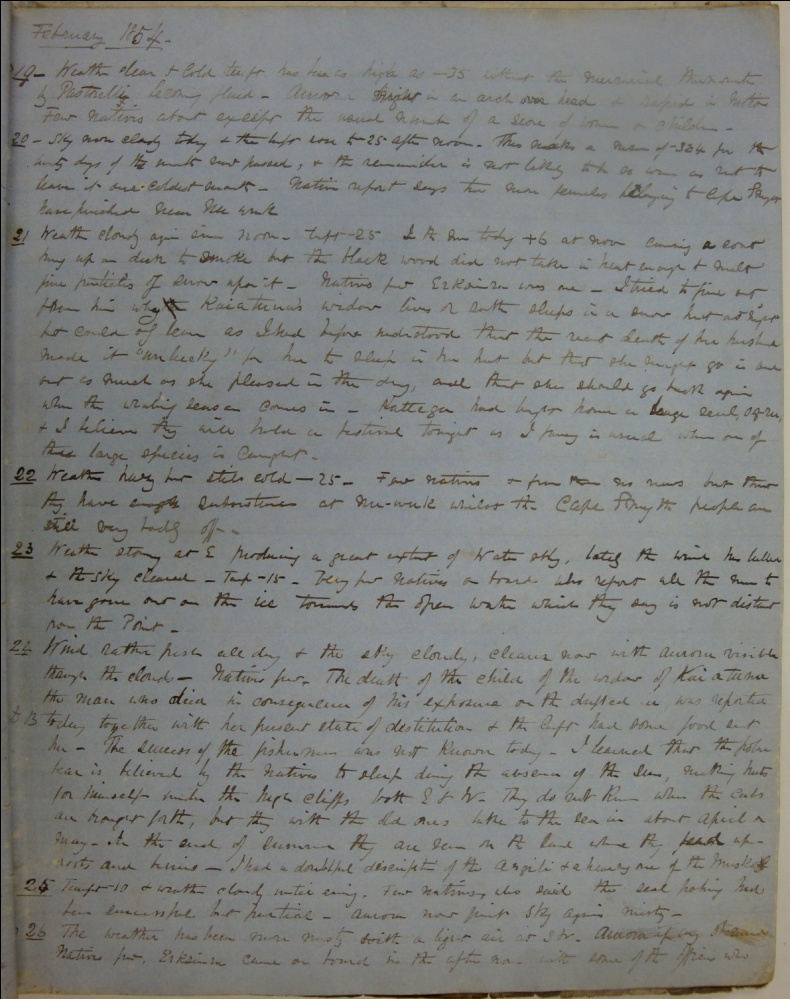 February 1854 -
19 - Weather clear & Cold temp has been as high as -35 without the mercurial thermometer
by Pastorelli becoming fluid - Aurora bright in an arch over head & rapid in motion
Few natives about except the usual number of a score of women & children -
20 - Sky more cloudy today & the temp rose to -25 after noon - This makes a mean of -32.4 for the
days of the month now passed, & the remainder is not likely to be so warm as not to
leave it our coldest month - Native report says two more females belonging to Cape Smyth
have perished near Nu-wuk
21 Weather cloudy again since noon - temp -25 In the sun today +6 at noon causing a coat
hung up on deck to smoke but the black wood did not take in heat enough to melt
fine particles of snow upon it - Natives few Erksinra was one - I tried to find out
from him why Kaiatuna's widow lives or rather sleeps in a snow hut at night
but could only learn as I had before understood that the recent death of her husband
made it "unlucky" for her to sleep in her hut but that she might go in and
out as much as she pleased in the day, and that she should go back again
when the whaling season comes in - had brought home a large seal,
& I believe they will hold a festival tonight as I fancy is usual when one of
these large species is caught -
22 Weather hazy but still cold -25 - Few natives & from them no news but that
they have enough subsistence at Nu-wuk whilst the Cape Smyth people are
still very badly off -
23 Weather stormy at E producing a great extent of Water sky, lately the wind has lulled
& the sky cleared - Temp -15 - Very few natives on board who report all the men to
have gone out on the ice towards the open water which they say is not distant
from the Point -
24 Wind rather fresh all day & the sky cloudy, clearer now with aurora visible
through the cloud - Natives few. The death of the child of the widow of Kaiatuna
the man who died in consequence of his exposure on the drifted ice, was reported
today together with her present state of destitution & the Capt had some food sent
her - The success of the fishermen was not known today - I learned that the polar
bear is believed by the natives to sleep during the absence of the Sun, making huts
for himself under the high cliffs both E & W - They do not know when the cubs
are brought forth, but they with the old ones take to the sea in about April or
May - In the end of summer they are seen on the land where they feed upon
roots and berries - I had a doubtful description of the & one of the Musk
25 Temp -10 & weather cloudy until evening. Few natives, who said the seal fishing had
been successful but partial - Aurora now faint Sky again misty -
26 The weather has been more misty with a light air at SW.
Natives few. Erksinra came on board in the after noon with some of the others who